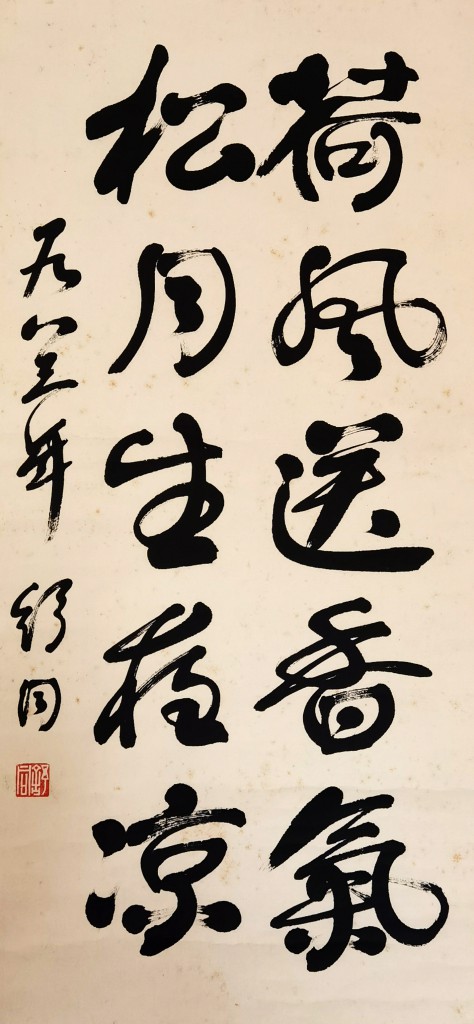 荷風送香氣
松月生夜凉
一九八三年 舒同
舒同